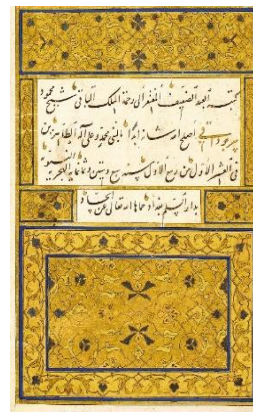 كتبه العبد الضعيف الفقير الى رحمة الملك الباقى شيخ محمود
پيربوداقى اصلح الله شانه ابدا بالنبى محمد وعلى آله الطاهرين
فى العشر الاول من ربيع الاول سنه سبع وستين وثمانمايه الهجريه
بدار السلم بغداد حماها الله تعالى عن